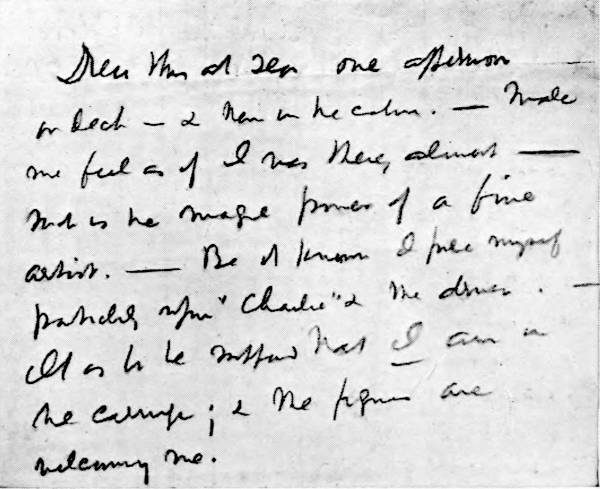 Drew this at sea one afternoon
on deck — & then in the cabin. — Made
me feel as if I was there, almost —
such is the magic power of a fine
artist. — Be it known I free myself
particularly upon "Charlie" & the driver. —
It is to be supposed that I am in
the carriage; & the figures are
welcoming me.